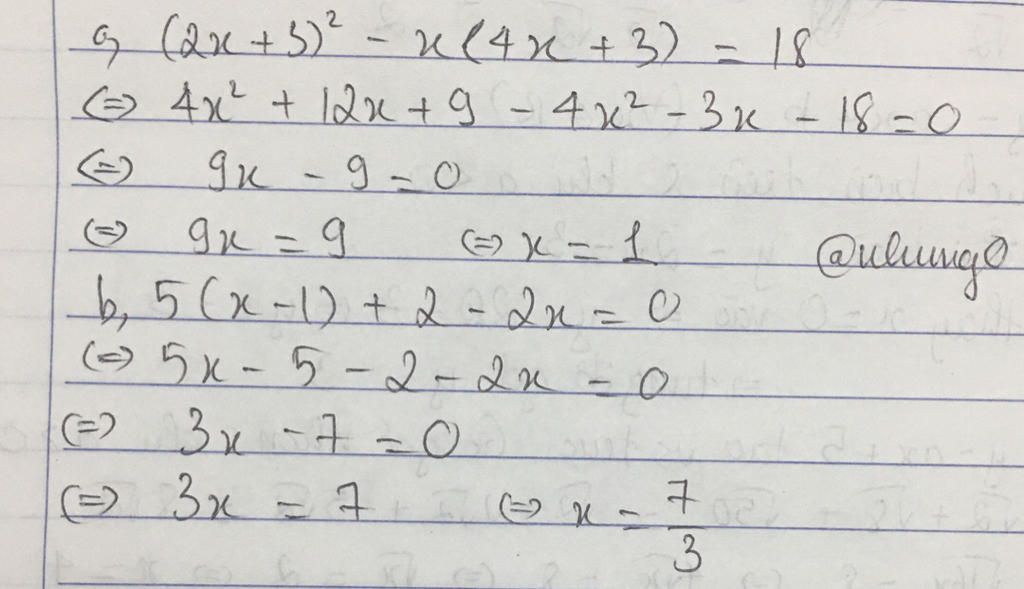 a, (2x + 3)² - x(4x + 3) = 18
⇔ 4x² + 12x + 9 - 4x² - 3x - 18 = 0
⇔ 9x - 9 = 0
⇔ 9x = 9 ⇔ x = 1
b, 5(x - 1) + 2 - 2x = 0
⇔ 5x - 5 - 2 - 2x = 0
⇔ 3x - 7 = 0
⇔ 3x = 7 ⇔ x = 7/3